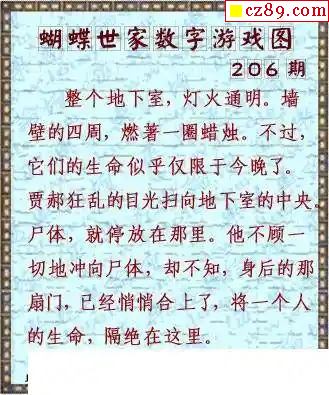 cz89.com
蝴蝶世家数字游戏图
206期
整个地下室，灯火通明。墙
壁的四周，燃著一圈蜡烛。不过，
它们的生命似乎仅限于今晚了。
贾郝狂乱的目光扫向地下室的中央.
尸体，就停放在那里。他不顾一
切地冲向尸体，却不知，身后的那
扇门，已经悄悄合上了，将一个人
的生命，隔绝在这里。